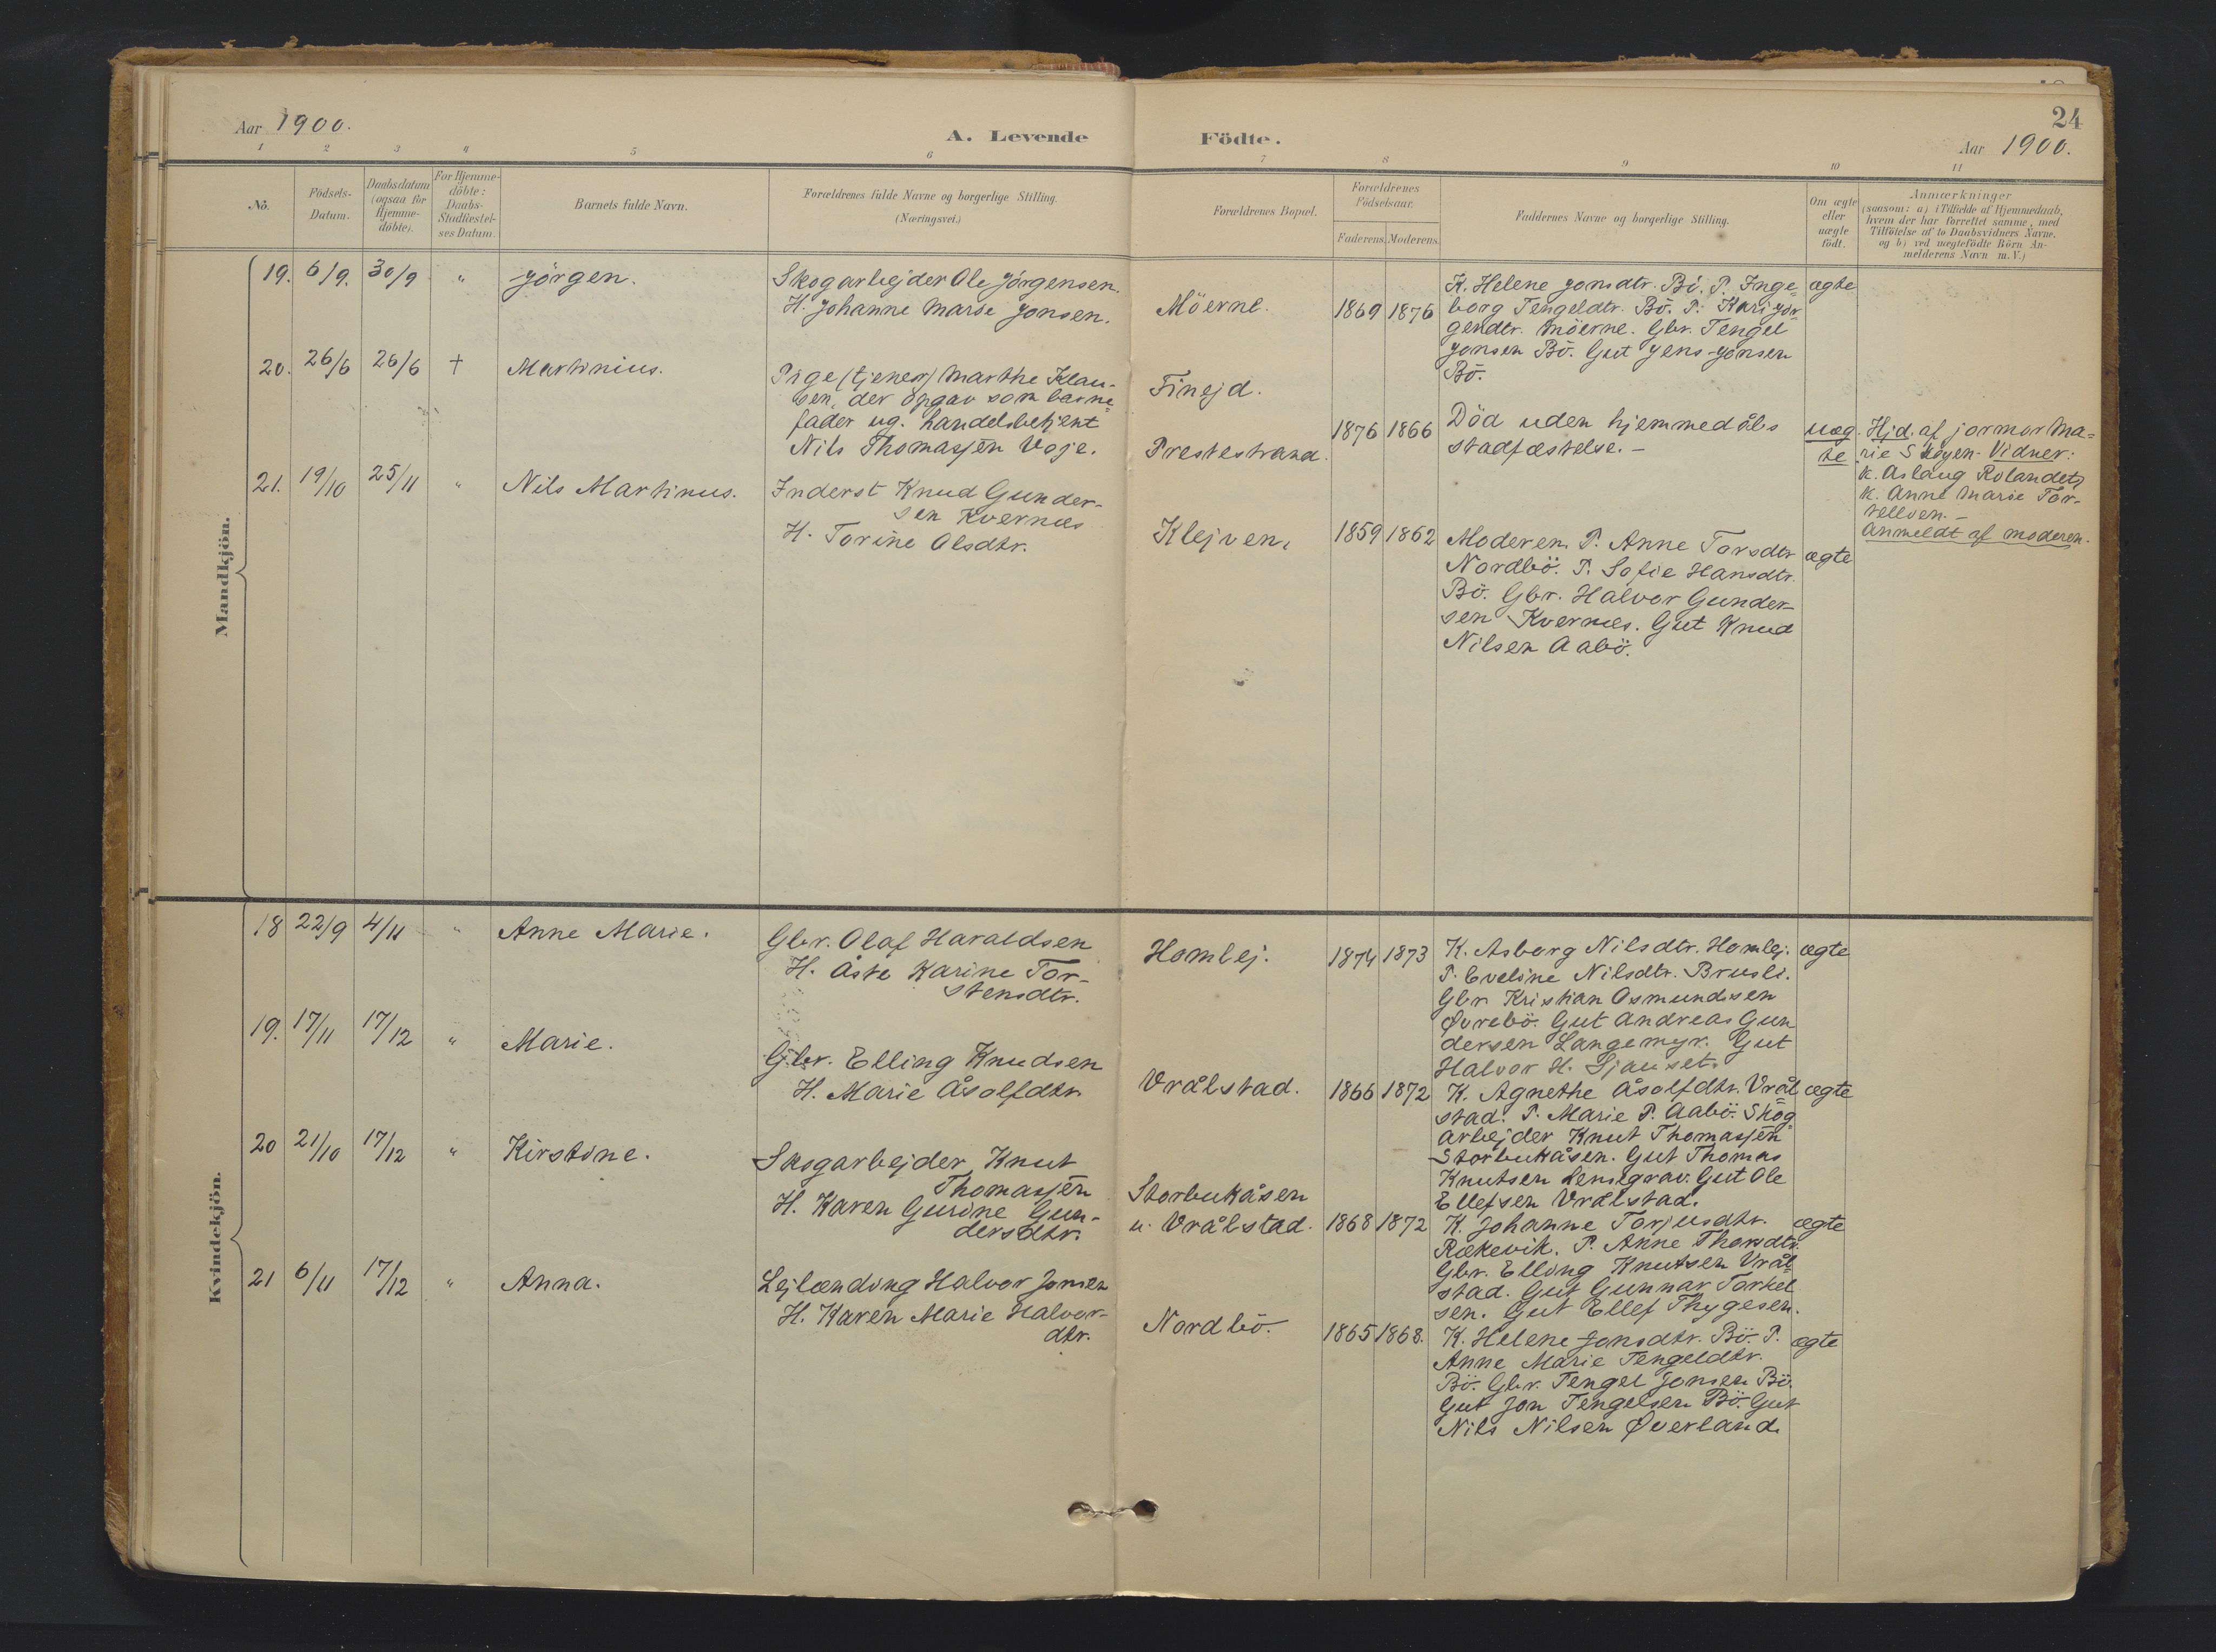 Aar 1900.
A. Levende Födte.
24
Aar 1900.
1 2 3 4 5 6 7 8 9 10 11
No.
Födsels-
Datum.
Daabsdatum
(ogsaa for
Hjemme-
döbte).
For Hjemme-
döbte:
Daabs-
Stadfæstel-
ses Datum.
Barnets fulde Navn.
Forældrenes fulde Navne og borgerlige Stilling.
(Næringsvei.)
Forældrenes Bopæl.
Forældrenes
Födselsaar.
Faderens. Moderens.
Faddernes Navne og borgerlige Stilling.
Om ægte
eller
uægte
födt.
Anmærkninger
(saasom: a) i Tilfælde af Hjemmedaab,
hvem der har forrettet samme, med
Tilföielse af to Daabsvidners Navne.
og b) ved uægtefödte Börn An-
melderens Navn m. V.)
Mandkjön.
19. 6/9. 30/9 " Jörgen.
Skogarbejder Ole Jörgensen.
H. Johanne Marie Jonsen.
Möerne. 1869 1876
K. Helene Jonsdtr. Bö. P. Inge=
borg Tengeldtr. Bö. P. Kari Jör=
gendtr. Möerne. Gbr. Tengel
Jonsen Bö. Gut Jens Jönsen
Bö.
ægte
20. 26/6 26/6 + Martinius.
Pige (tjener) Marthe Klau-
sen, der opgav som barne=
fader ug. handelsbetjent
Nils Thomassen Voje.
Finejd.
Prestestrand. 1876 1866
Död uden hjemmedåbs
stadfæstelse.-
uæg.
te
Hjd. af jormor Ma=
rie Skojen. Vidner:
K. Aslaug Rolandets
K. Anne Marie Tor-
vellven.-
Anmeldt af moderen.
21. 19/10 25/11 " Nils Martinus.
Inderst Knud Gunder-
sen Kvernes
H. Torine Olsdtr.
Klejven, 1859 1862
Moderen. P. Anne Torsdtr
Nordbö. P. Sofie Hansdtr.
Bö. Gbr. Halvor Gunder-
sen Kvernes. Gut Knud
Nilsen Aabö.
ægte
Kvindekjön.
18 22/9 4/11 " Anne Marie.
Gbr. Olaf Haraldsen
H. Åste Karine Tor-
stensdtr.
Homlej. 1874 1873
K. Asborg Nilsdtr. Homlej.
P. Eveline Nilsdtr. Brusli.
Gbr Kristian Osmundsen
Øvrebö. Gut Andreas Gun
dersen Langemyr. Gut
Halvor H. Ljauset.
ægte
19. 17/11 17/12 " Marie.
Gbr. Elling Knudsen
H. Marie Åsolfdtr.
Vrålstad. 1866 1872
K. Agnethe Åsolfdtr. Vrål
stad. P. Marie P. Aabö. Skog
arbejder Knut Thomassen
Storbukåsen. Gut Thomas
Knutsen Lensegrav. Gut Ole
Ellefsen Vrålstad.
ægte
20 21/10 17/12 " Kirstine.
Skogarbejder Knut
Thomassen
H. Karen Gurine Gun-
dersdtr.
Storbukåsen
u. Vrålstad. 1868 1872
K. Johanne Torjusdtr.
Rækevik. P. Anne Thorsdtr.
Gbr. Elling Knutsen Vrål
stad. Gut Gunnar Torkel
sen. Gut Ellef Thygesen.
ægte
21 6/11 17/12 " Anna.
Lejlænding Halvor Jonsen
H. Karen Marie Halvor-
dtr.
Nordbö. 1865 1868.
K. Helene Jonsdtr. Bö. P.
Anne Marie Tengeldtr.
Bö. Gbr. Tengel Jonsen Bö.
Gut Jon Tengelsen Bö. Gut
Nils Nilsen Øverland.
ægte